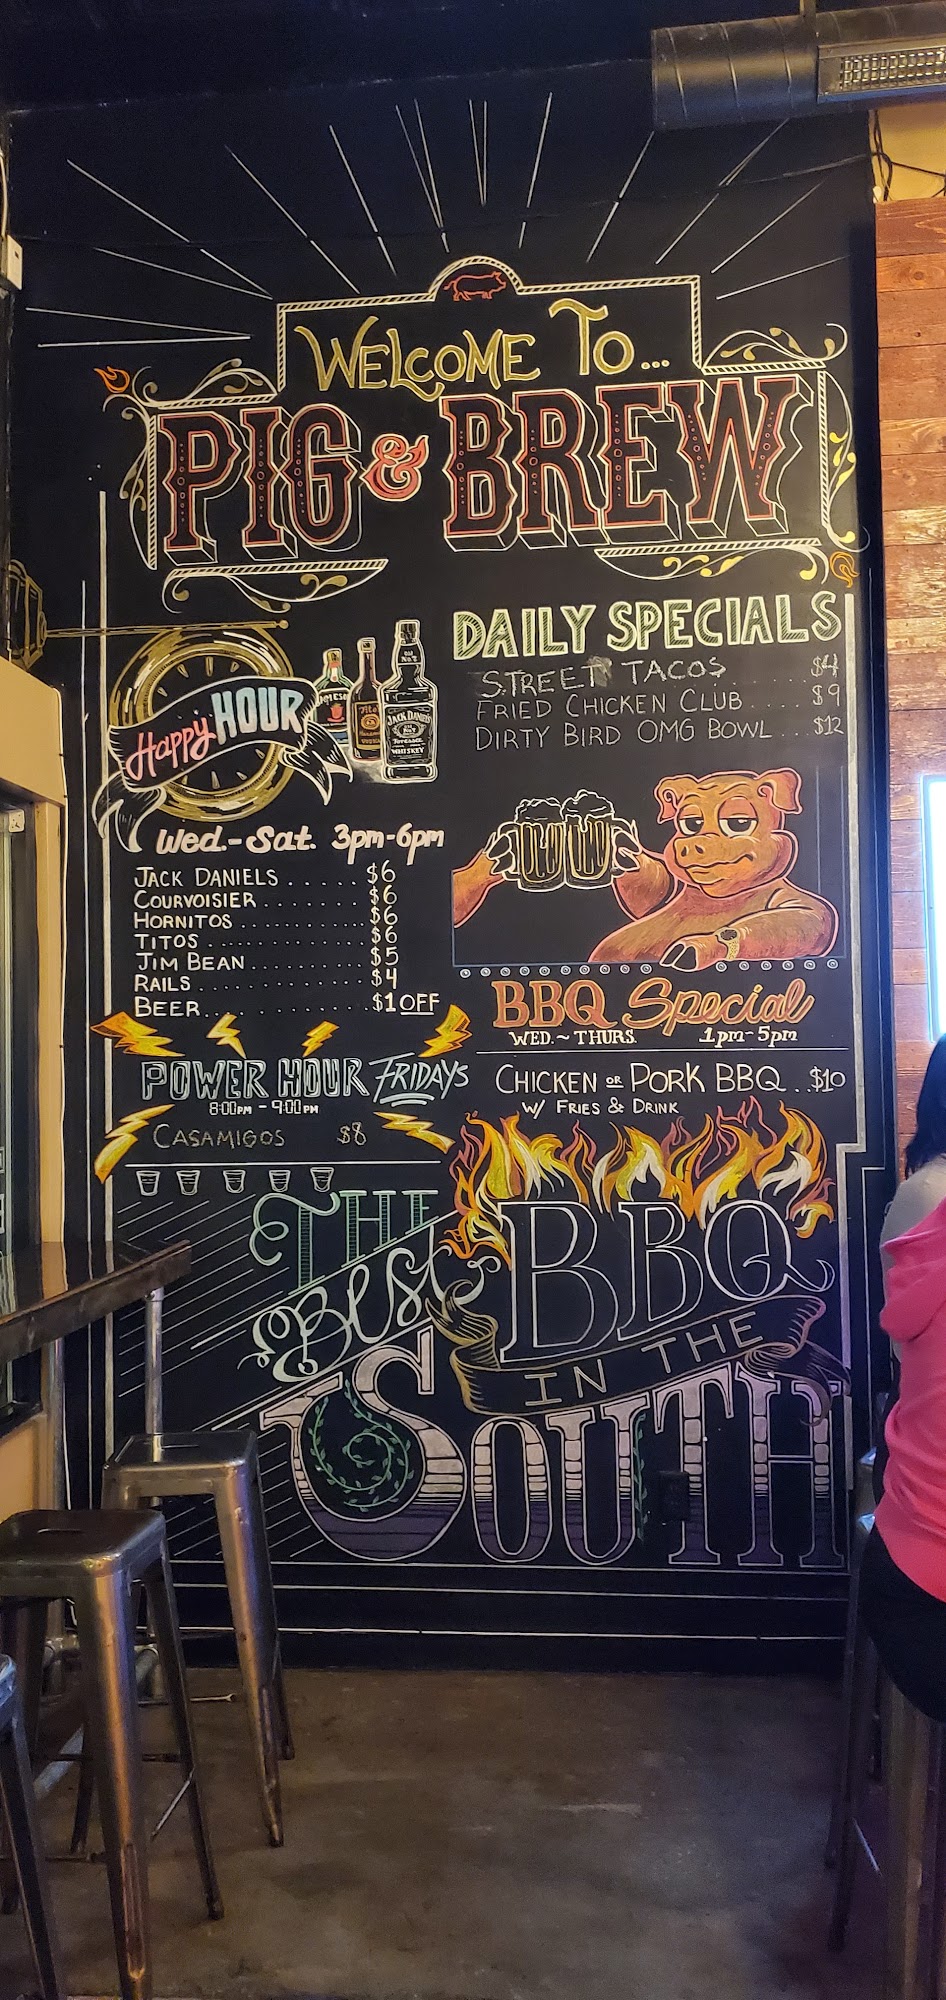 WELCOME TO...
PIG & BREW
Happy HOUR
JACK DANIEL'S
OLD
No.7
WHISKEY
Wed.-Sat. 3pm-6pm
JACK DANIELS ...... $6
COURVOISIER ........ $6
HORNITOS ............ $6
TITOS ............... $6
JIM BEAN ........... $5
RAILS ............... $4
BEER .............. $1 OFF
POWER HOUR FRIDAYS
8:00PM - 9:00PM
CASAMIGOS $8
DAILY SPECIALS
STREET TACOS ...... $4
FRIED CHICKEN CLUB .... $9
DIRTY BIRD OMG BOWL ... $12
BBQ Special
WED. ~ THURS. 1pm-5pm
CHICKEN OR PORK BBQ .. $10
W/ FRIES & DRINK
THE
Best BBQ
IN THE
SOUTH